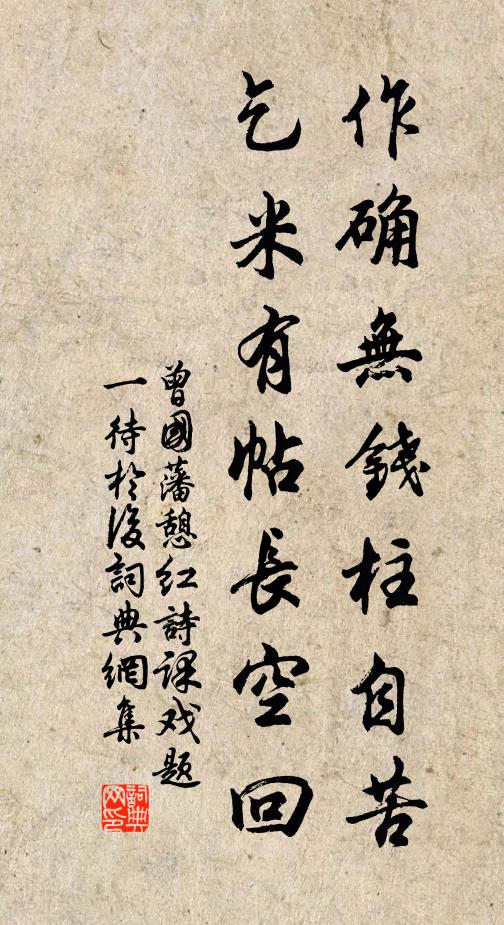 作确無錢柱自苦
乞米有帖長空回
曾國藩憩红詩课戏题
一待於后詞典網集
詞典网印